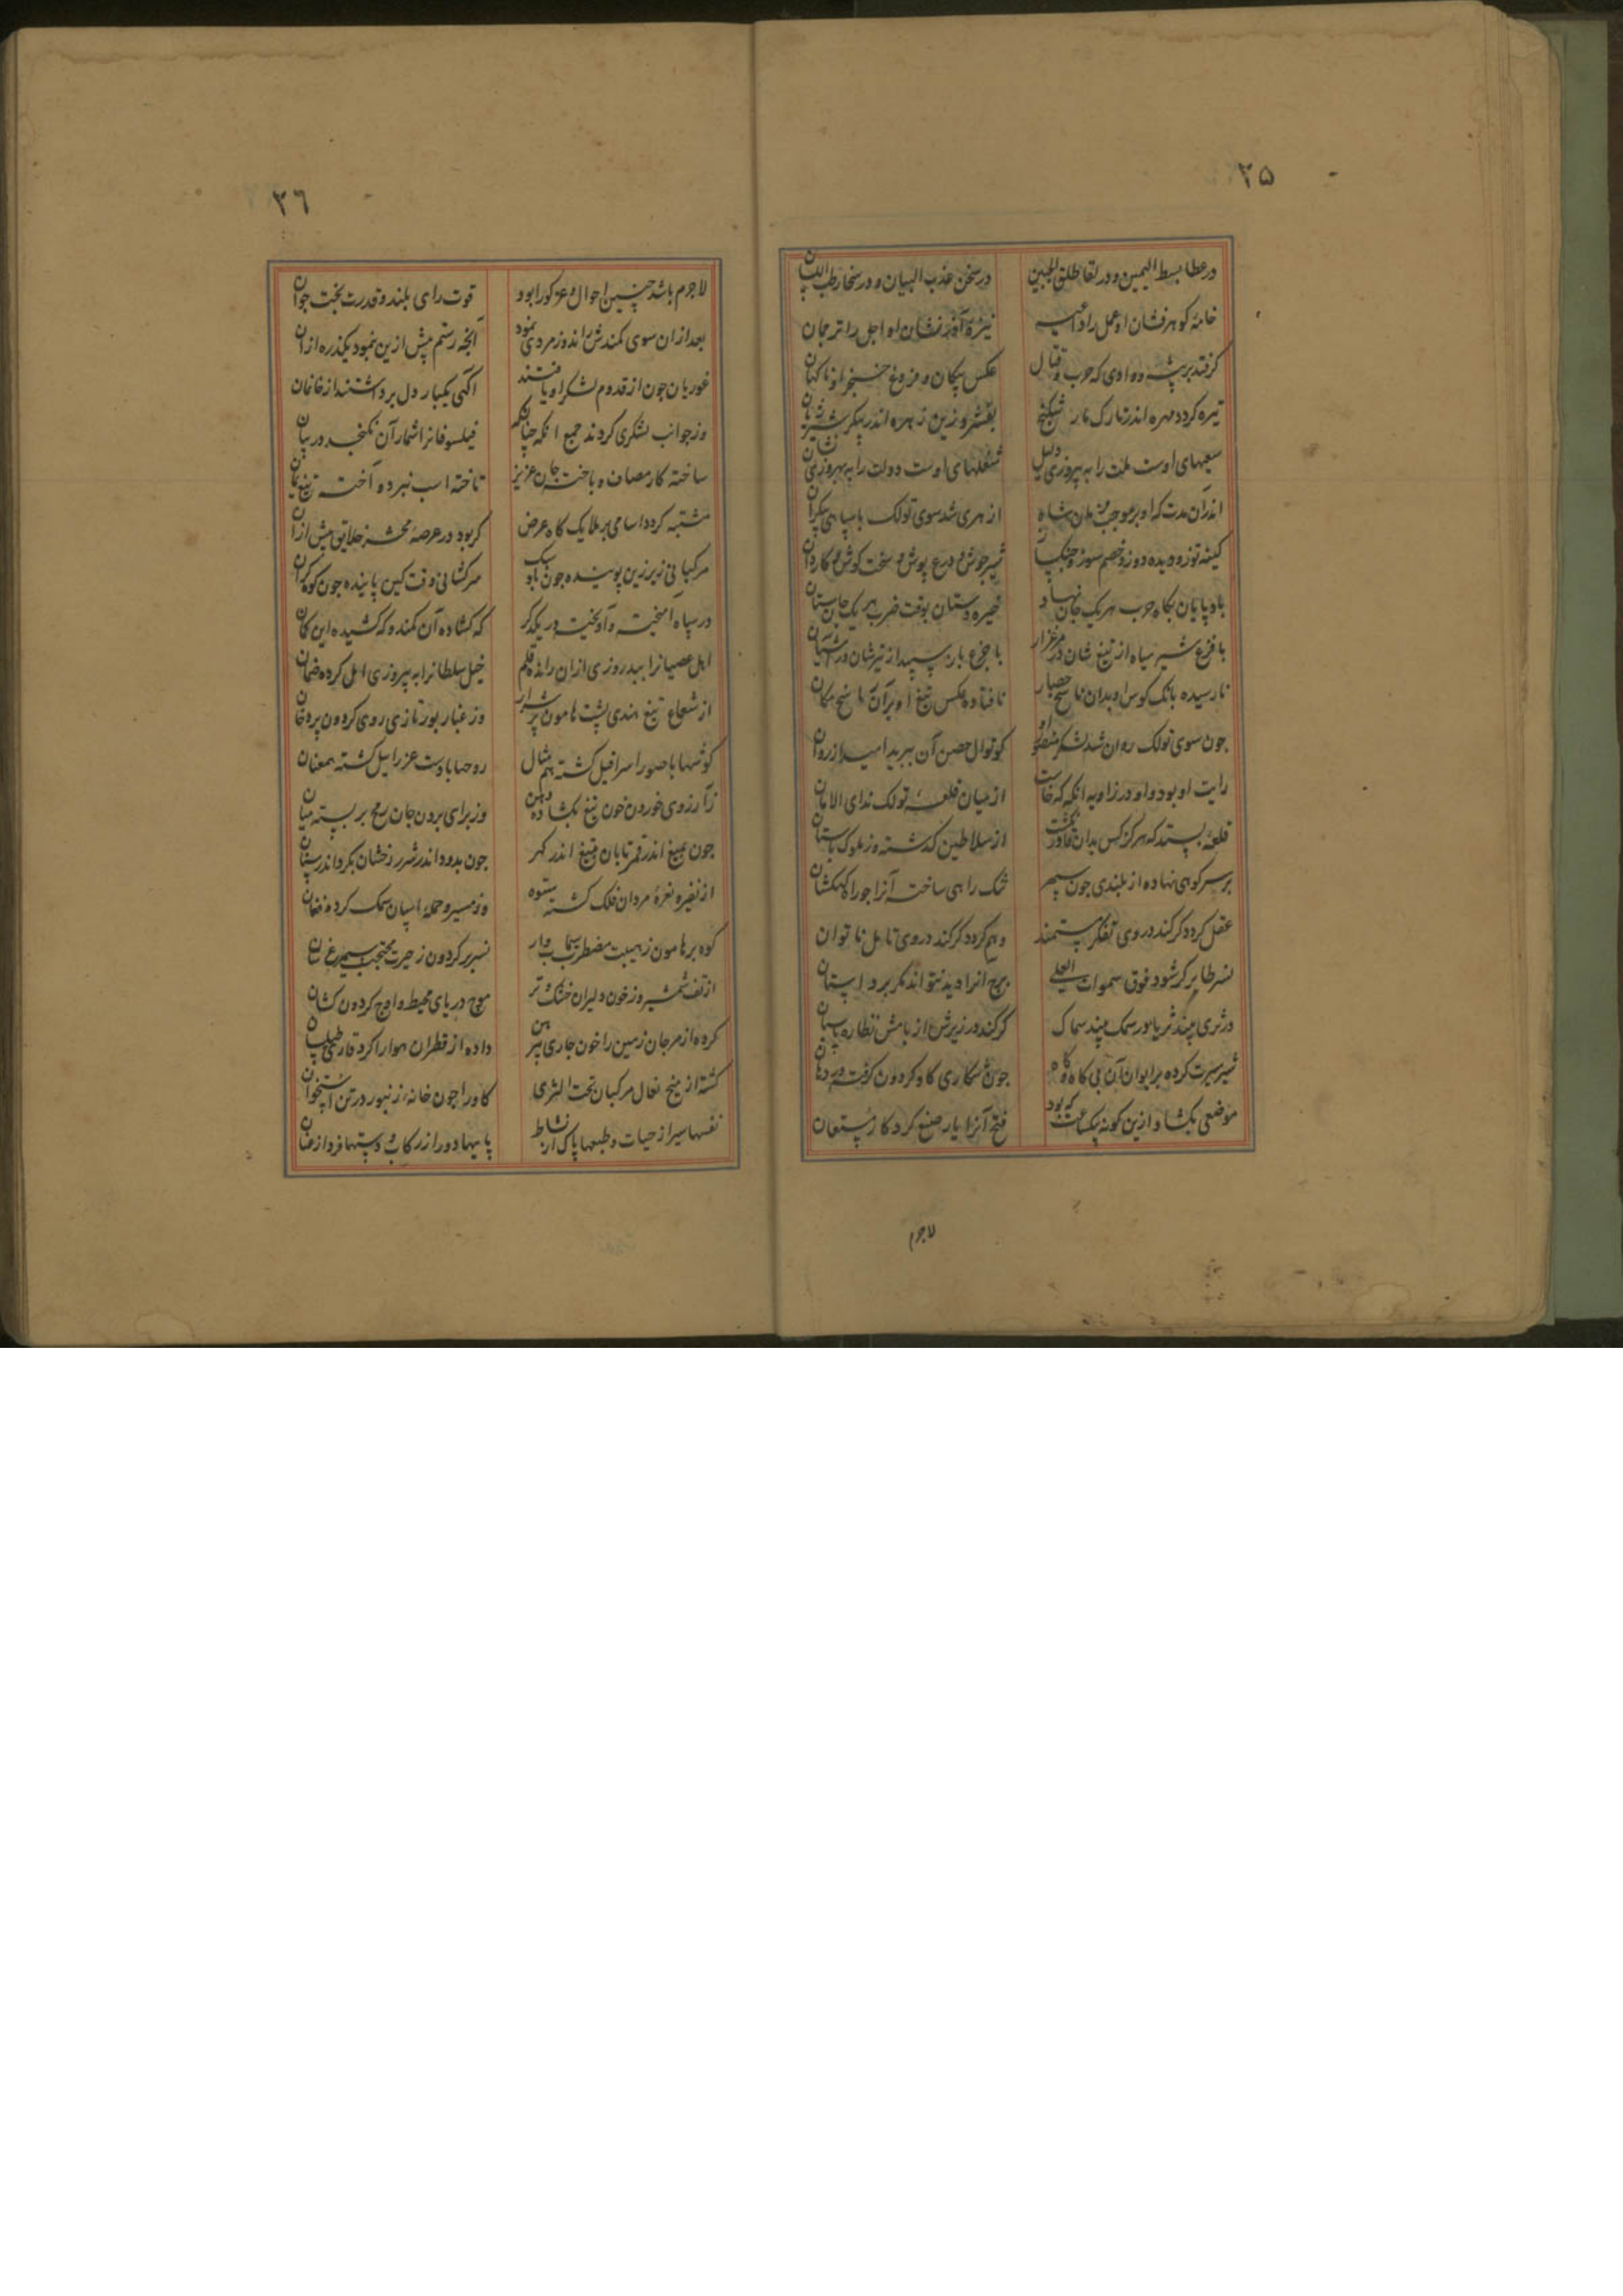 ۳۵
در عطا بسط الیمین و در لقا طلق الجبین در سخن عذب البیان و در سخا رطب
خامهٔ کوهرفشان او عمل را نیزهٔ آذرنشان او اجل را ترجمان
کر فتد بر پشه و وادی که حرب و قتال عکس پیکان و فروغ خنجر او ناکهان
تیره کردد مهره اندر تارک مار شکنج بفشرد زین زهره اندر پیکر شیر ژیان
سعیهای اوست ملت را به پیروزی دلیل شغلهای اوست دولت را به بهروزی نشان
اندران مدت که او بر موجب فرمان شاه از هری شد سوی تولک با سپاهی بیکران
کینه توز و دیده دوز و خصم سوز و شیر جوش و درع پوش و سخت کوش و کاردان
باد پایان بکاه حرب هر یک جان نهاد خیره دستان بوقت ضرب هر یک جان ستان
با فزع شیر سیاه از تیغ شان در مرغزار با جزع باز سپید از تیرشان در آشیان
نارسیده بانک کوس او بدان حصار نافتاده عکس تیغ او بران مکان
جون سوی تولک روان شد لشکر منصور او کوتوال حصن آن ببرید امید از روان
رایت او بود و او در زاویه انکه که خاست از میان قلعهٔ تولک ندای الامان
قلعهٔ بستد که هرکز کس بدان قادر نکشت از سلاطین کذشته وز ملوک باستان
بر سر کوهی نهاده از بلندی جون سپهر تنک راهی ساخته آنرا جو راه کهکشان
عقل کردد کر کند در وی تفکر مستمند وهم کردد کر کند در وی تامل ناتوان
نسر طایر کر شود فوق سموات العلی برج انرا دید نتواند مکر بر داستان
در ثری بیند ثریا و ر سمک بیند سماک کر کند در زیرش از بامش نظاره پاسبان
شیر سیرت کرده بر ایوان آن بی کاه و کاه جون شکاری کاو کردون کرفته در دهان
موضعی بکشاد ازین کونه بیکساعت که بود فتح آنرا یار صنع کردکار مستعان
لاجرم
۳٦
لاجرم باشد چنین احوال و عز کورا بود قوت رای بلند و قدرت بخت جوان
بعد ازان سوی کمندش راند وز مردی نمود آنچه رستم پیش ازین ننمود یکذره ازان
غوریان جون از قدوم لشکر او یافتند آکهی یکبار دل برداشتند از خانمان
وز جوانب لشکری کردند جمع انکه چنانک فیلسوفانرا شمار آن نکنجد در بیان
ساخته کار مصاف و باخته جان عزیز تاخته اسب نبرد و آخته تیغ یمان
مشتبه کردد اسامی بر ملایک کاه عرض کر بود در عرصهٔ محشر خلایق بیش ازان
مرکبانی زیر زین پوینده جون باد سبک سرکشانی وقت کین پاینده جون کوه کران
در سپاه آمیخته و آویخته در یکدکر که کشاده آن کمند و که کشیده این کمان
اهل عصیانرا ببدروزی ازان رانده قلم خیل سلطانرا به پیروزی امل کرده ضمان
از شعاع تیغ هندی پشت هامون پر شرار وز غبار بور تازی روی کردون پر دخان
کوشها با صور اسرافیل کشته هم مثال روحها با دست عزراییل کشته همعنان
ز آرزوی خوردن خون تیغ بکشاده دهن وز برای بردن جان رمح بربسته میان
جون بمیغ اندر قمر تابان بتیغ اندر کهر جون بدود اندر شرر رخشان بکرد اندر سنان
از نفیر و نعرهٔ مردان فلک کشته ستوه وز مسیر و حملهٔ اسپان سمک کرده فغان
کوه بر هامون ز هیبت مضطرب سیماب وار نسر بر کردون ز حیرت محتجب سیمرغ سان
از تف شمشیر وز خون دلیران خشک و تر موج دریای محیط و اوج کردون کشان
کرده از مرجان زمین را خون جاری پیرهن داده از قطران هوا را کرد قاری طیلسان
کشته از میخ نعال مرکبان تحت الثری کاو را جون خانهٔ زنبور در تن استخوان
نفسها سیر از حیات و طبعها پاک از نشاط پایها دور از رکاب و دستها فرد از عنان